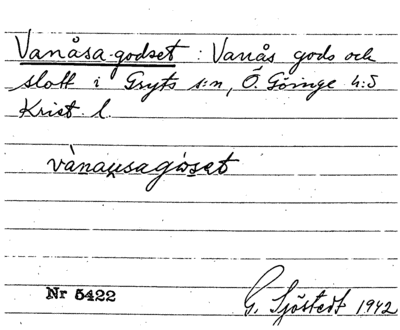 Vanåsa-godset : Vanås gods och
slott i Gryts s:n, Ö. Göinge h:d
Krist. l.
vànau̯sagòsət
Nr 5422
G. Sjöstedt 1942